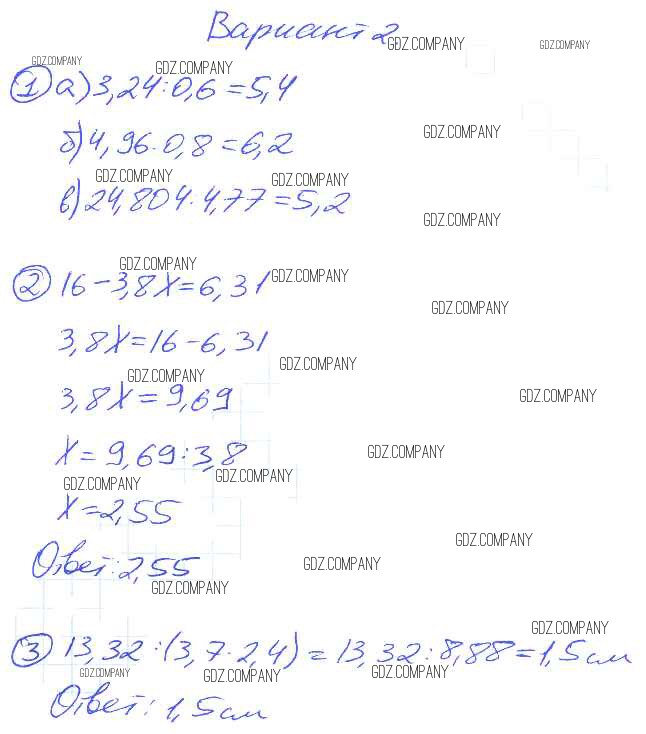 Вариант 2 GDZ.COMPANY GDZ.COMPANY
GDZ.COMPANY GDZ.COMPANY
1 а) 3,24:0,6=5,4
GDZ.COMPANY
б) 4,96·0,8=6,2
GDZ.COMPANY GDZ.COMPANY
в) 24,804·4,77=5,2
GDZ.COMPANY
GDZ.COMPANY GDZ.COMPANY
2 16-3,8x=6,31
GDZ.COMPANY
3,8x=16-6,31
GDZ.COMPANY
GDZ.COMPANY GDZ.COMPANY
3,8x=9,69
x=9,69:3,8 GDZ.COMPANY
GDZ.COMPANY GDZ.COMPANY
x=2,55
GDZ.COMPANY
Ответ: 2,55 GDZ.COMPANY
GDZ.COMPANY
GDZ.COMPANY
3 13,32:(3,7·2,4)=13,32:8,88=1,5см
GDZ.COMPANY GDZ.COMPANY GDZ.COMPANY
Ответ: 1,5см